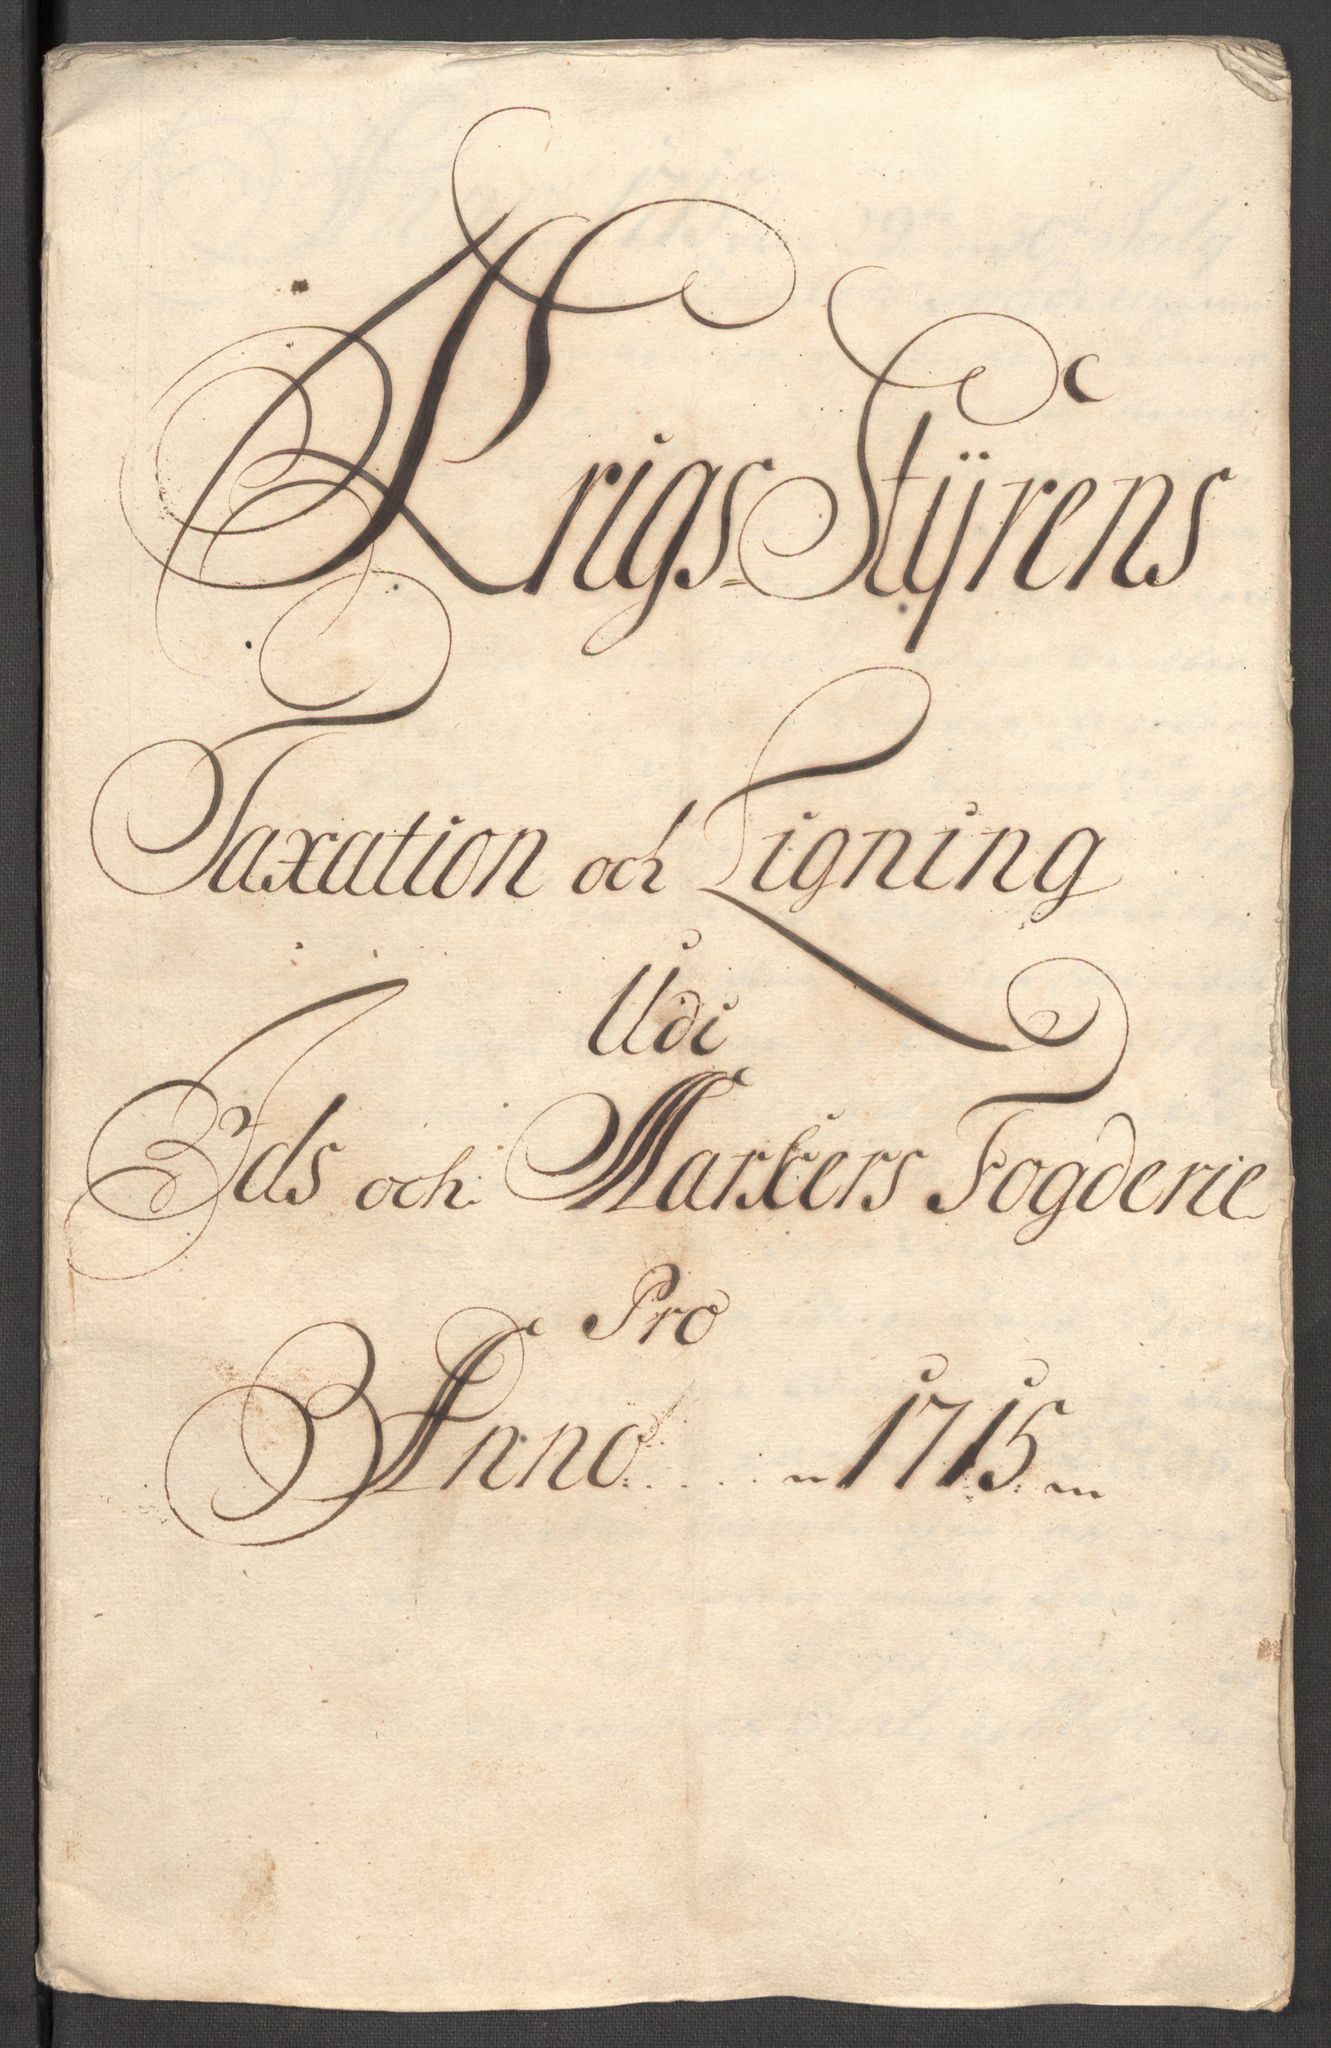 Krigs-Stÿrens
Taxation och Ligning
Udi
Ids och Markers Fogderie
Pro
Anno 1715